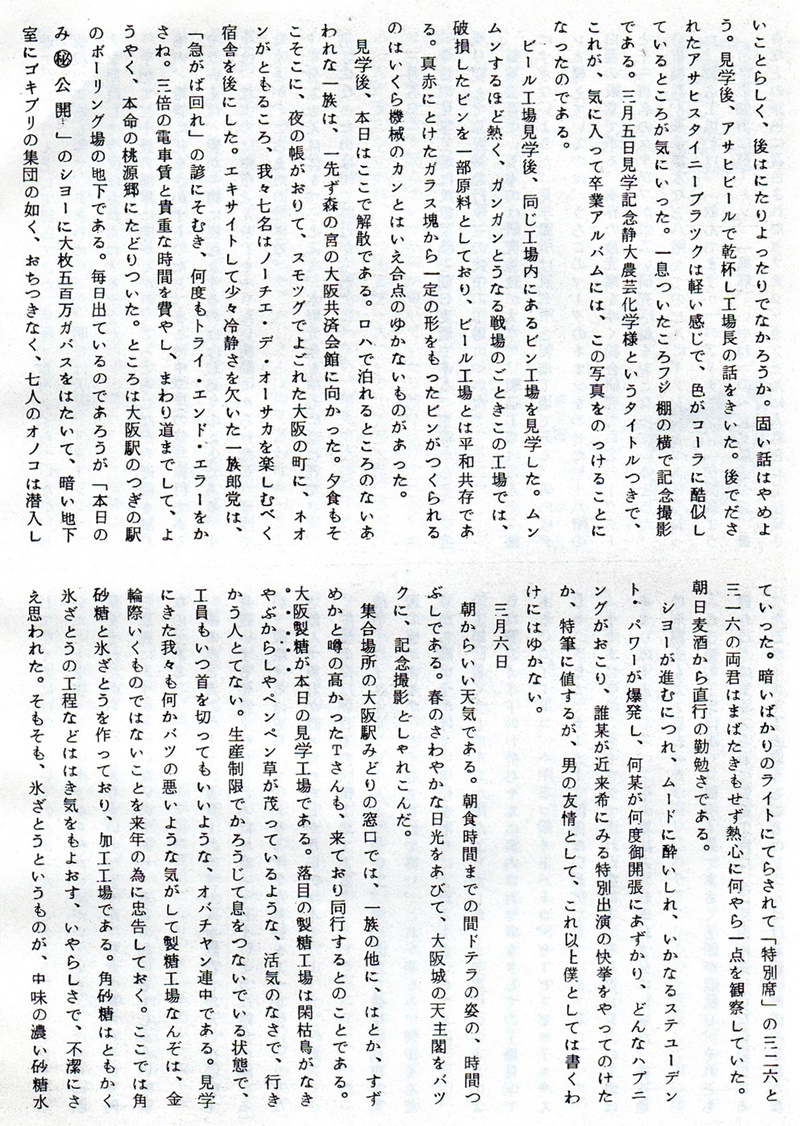 いことらしく、後はにたりよったりでなかろうか。固い話はやめよ
う。見学後、アサヒビールで乾杯し工場長の話をきいた。後でださ
れたアサヒスタイニーブラックは軽い感じで、色がコーラに酷似し
ているところが気にいった。一息ついたころフジ棚の横で記念撮影
である。三月五日見学記念静大農芸化学様というタイトルつきで、
これが、気に入って卒業アルバムには、この写真をのっけることに
なったのである。
ビール工場見学後、同じ工場内にあるビン工場を見学した。ムン
ムンするほど熱く、ガンガンとうなる戦場のごときこの工場では、
破損したビンを一部原料としており、ビール工場とは平和共存であ
る。真赤にとけたガラス塊から一定の形をもったビンがつくられる
のはいくら機械のカンとはいえ合点のゆかないものがあった。
見学後、本日はここで解散である。ロハで泊れるところのないあ
われな一族は、一先ず森の宮の大阪共済会館に向かった。夕食もそ
こそこに、夜の帳がおりて、スモッグでよごれた大阪の町に、ネオ
ンがともるころ、我々七名はノーチエ・デ・オーサカを楽しむべく
宿舎を後にした。エキサイトして少々冷静さを欠いた一族郎党は、
「急がば回れ」の諺にそむき、何度もトライ・エンド・エラーをか
さね。三倍の電車賃と貴重な時間を費やし、まわり道までして、よ
うやく、本命の桃源郷にたどりついた。ところは大阪駅のつぎの駅
のボーリング場の地下である。毎日出ているのであろうが「本日の
み㊙公開！」のショーに大枚五百万ガバスをはたいて、暗い地下
室にゴキブリの集団の如く、おちつきなく、七人のオノコは潜入し
ていった。暗いばかりのライトにてらされて「特別席」の三二六と
三一六の両君はまばたきもせず熱心に何やら一点を観察していた。
朝日麦酒から直行の勤勉さである。
ショーが進むにつれ、ムードに酔いしれ、いかなるステューデン
ト・パワーが爆発し、何某が何度御開張にあずかり、どんなハプニ
ングがおこり、誰某が近来希にみる特別出演の快挙をやってのけた
か、特筆に値するが、男の友情として、これ以上僕としては書くわ
けにはゆかない。
三月六日
朝からいい天気である。朝食時間までの間ドテラの姿の、時間つ
ぶしである。春のさわやかな日光をあびて、大阪城の天主閣をバッ
クに、記念撮影としゃれこんだ。
集合場所の大阪駅みどりの窓口では、一族の他に、はとか、すず
めかと噂の高かったTさんも、来ており同行するとのことである。
大阪製糖が本日の見学工場である。落目の製糖工場は閑枯鳥がなき
やぶからしやペンペン草が茂っているような、活気のなさで、行き
かう人とてない。生産制限でかろうじて息をつないでいる状態で、
工員もいつ首を切ってもいいような、オバチャン連中である。見学
にきた我々も何かバツの悪いような気がして製糖工場なんぞは、金
輪際いくものではないことを来年の為に忠告しておく。ここでは角
砂糖と氷ざとうを作っており、加工工場である。角砂糖はともかく
氷ざとうの工程などははき気をもよおす、いやらしさで、不潔にさ
え思われた。そもそも、氷ざとうというものが、中味の濃い砂糖水